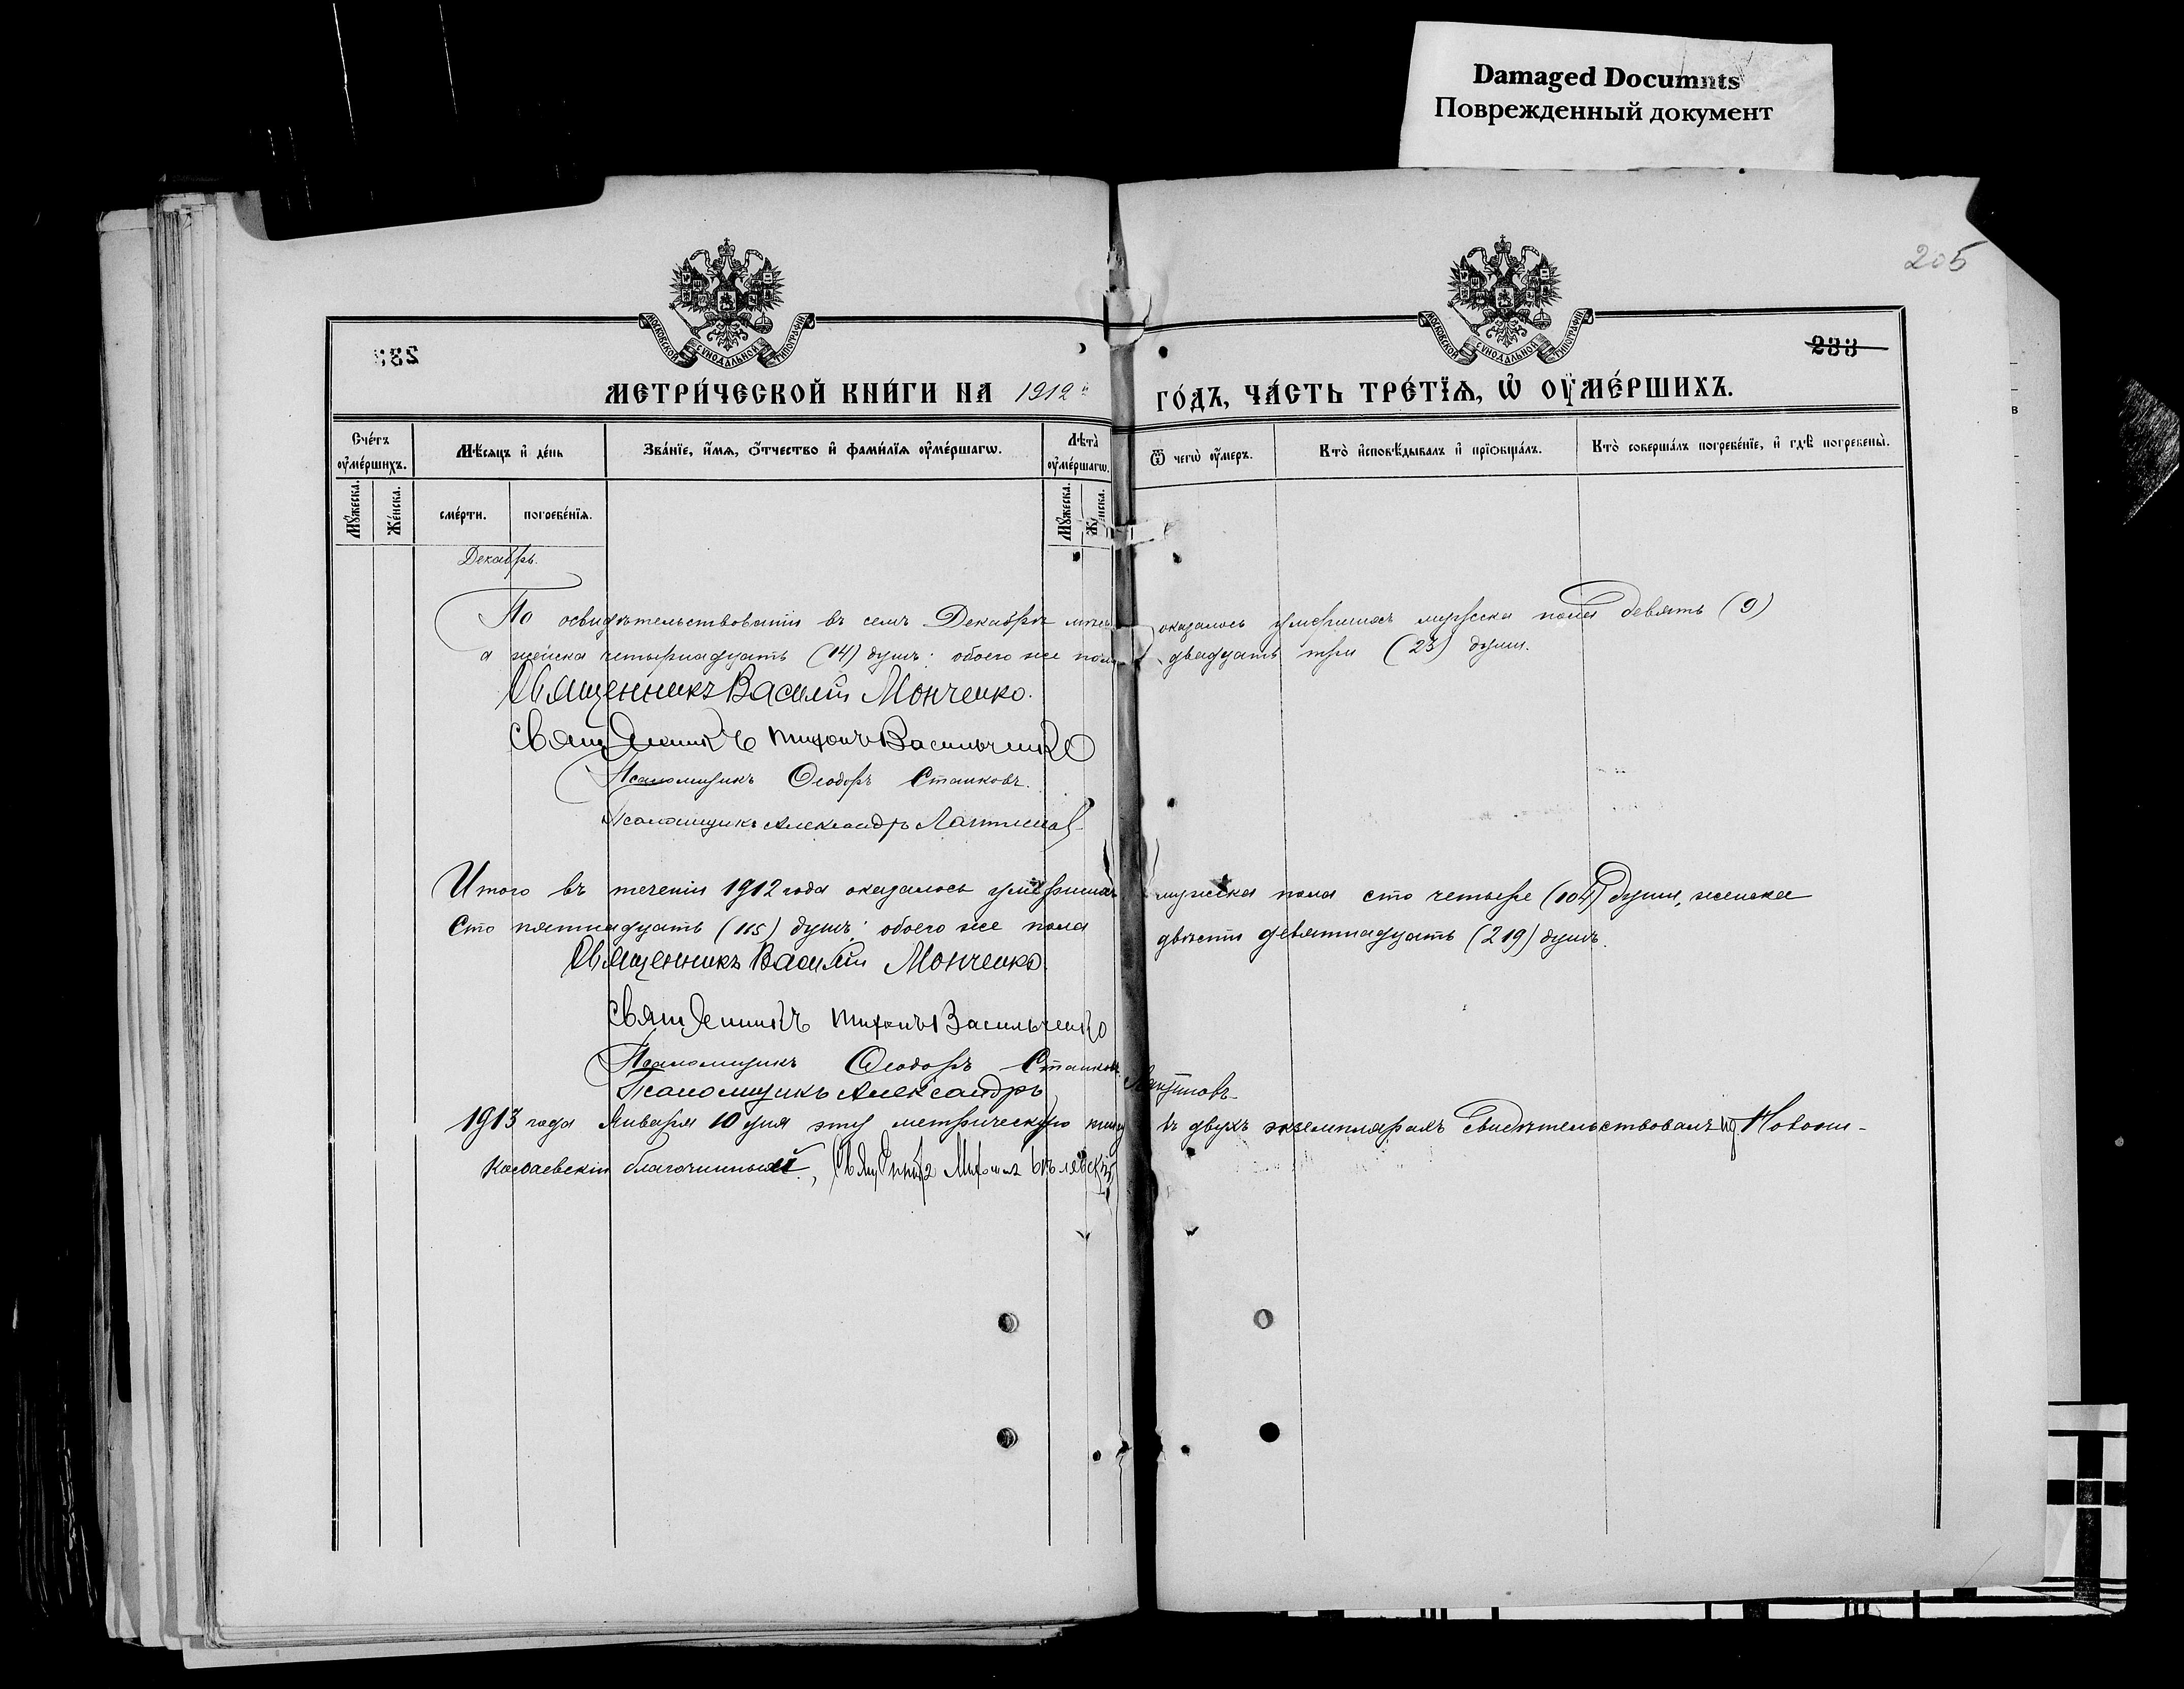 Damaged Documnts
Поврежденный документ
205
МОСКОВСКОЙ СѴНОДАЛЬНОЙ ТИПОГРАФІИ
МОСКОВСКОЙ СѴНОДАЛЬНОЙ ТИПОГРАФІИ
233
МЕТРИ́ЧЕСКОЙ КНИ́ГИ НА 1912 ГО́ДЪ, ЧА́СТЬ ТРЕ́ТЇѦ, Ѡ҆ ОУ҆МЕ́РШИХЪ.
Сче́тъ оу҆ме́ршихъ.
Мѣ́сяцъ и҆ де́нь
Зва́нїе, и҆́мя, ѻ҆́тчество и҆ фами́лїя оу҆ме́ршагѡ.
Лѣта̀ оу҆ме́ршагѡ.
Ѿ чегѡ̀ оу҆́меръ.
Кто̀ и҆сповѣ́дывалъ и҆ прїѡбща́лъ.
Кто̀ соверша́лъ погребе́нїе, и҆ гдѣ̀ погребены̀.
Мꙋ́жеска.
Же́нска.
сме́рти.
погребе́нїя.
Мꙋ́жеска.
Же́нска.
Декабрь.
По освидѣтельствованіи въ семъ Декабрѣ мѣс оказалось умершихъ мужеска пола девять (9)
а женска четырнадцать (14) душъ: обоего же пола двадцать три (23) души.
Священникъ Василій Монченко.
Священникъ Тихонъ Васильченко
Псаломщикъ Ѳеодоръ Станковъ.
Псаломщикъ Александръ
Итого въ теченіи 1912 года оказалось умершихъ мужеска пола сто четыре (104) души, женска
сто пятнадцать (115) душъ: обоего же пола двѣсти девятнадцать (219) душъ.
Священникъ Василій Монченко.
Священникъ Тихонъ Васильченко
Псаломщикъ Ѳеодоръ Станковъ.
Псаломщикъ Александръ
1913 года Января 10 дня эту метрическую книгу въ двухъ экземплярахъ свидѣтельствовалъ Новони-
колаевскій благочинный, Священникъ